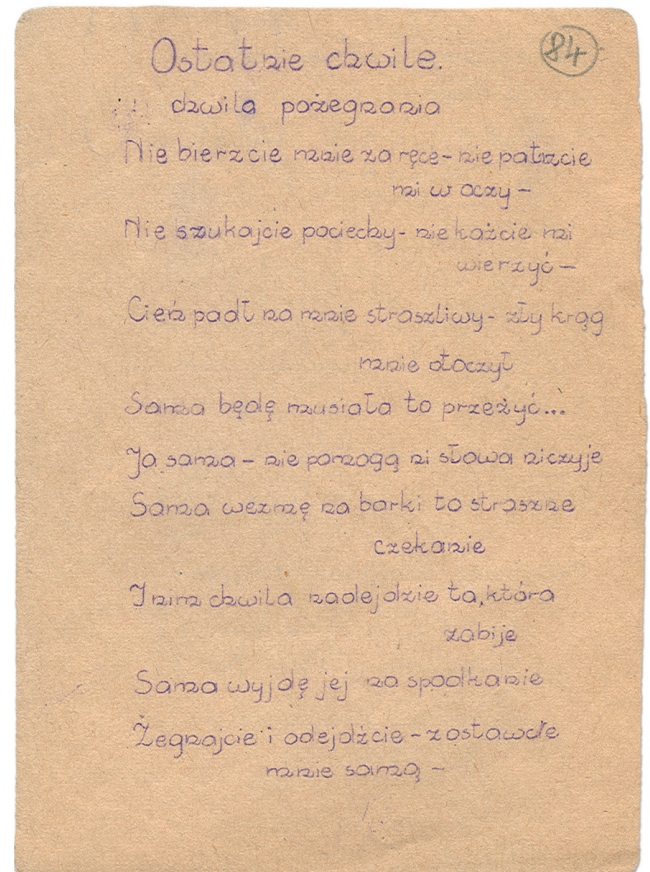 84
Ostatnie chwile.
chwila pożegnania
Nie bierzcie mnie za ręce - nie patrzcie
mi w oczy -
Nie szukajcie pociechy - nie każcie mi
wierzyć -
Cień padł na mnie straszliwy - zły krąg
mnie otoczył
Sama będę musiała to przeżyć...
Ja sama - nie pomogą mi słowa niczyje
Sama wezmę na barki to straszne
czekanie
I nim chwila nadejdzie ta, która
zabije
Sama wyjdę jej na spotkanie
Żegnajcie i odejdźcie - zostawcie
mnie samą -